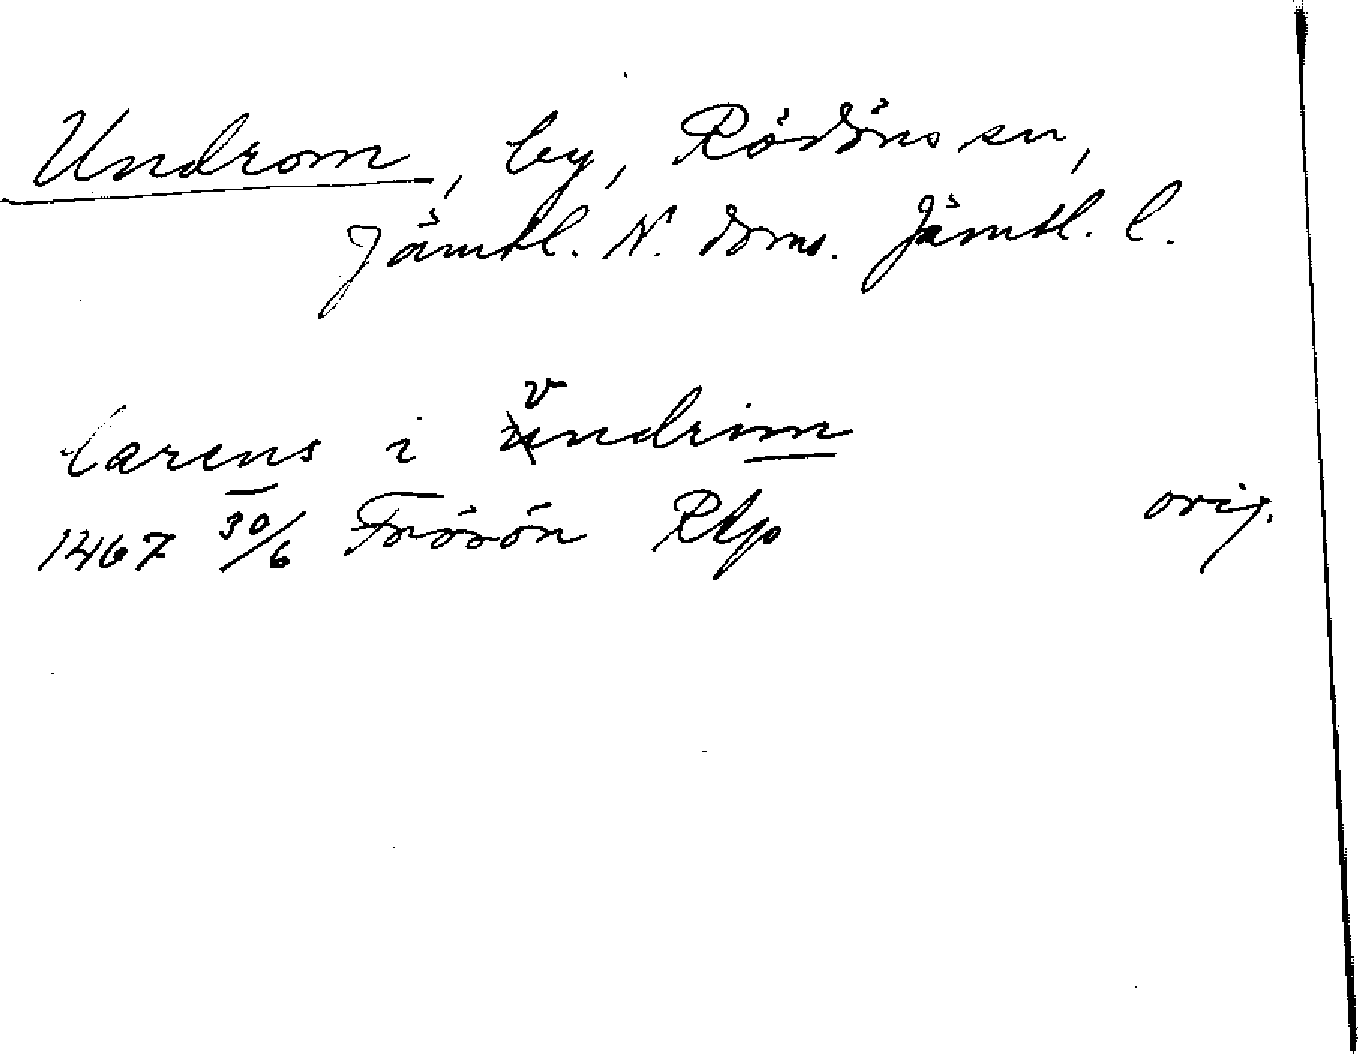 Undrom, by, Rödöns sn,
Jämtl. N. doms. Jämtl. l.
larens i vndrim
1467 30/6 Frösön Rtp orig.